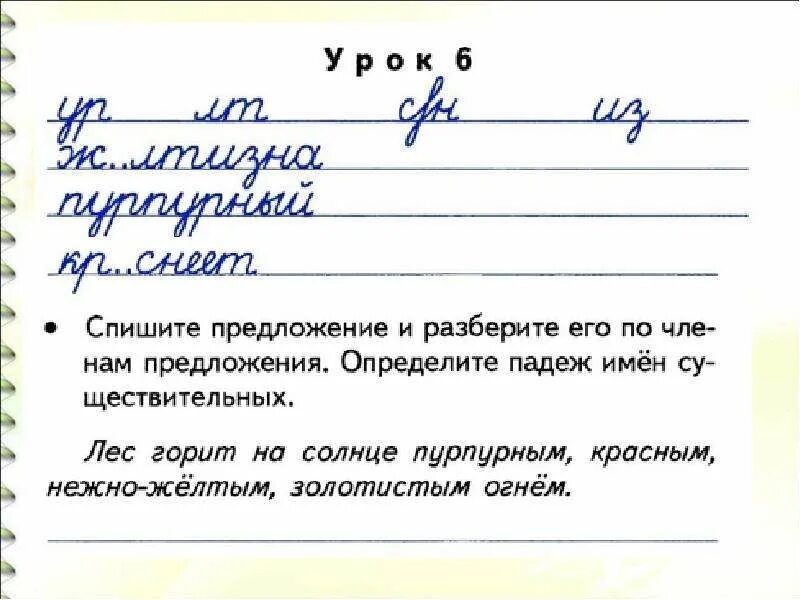 Урок 6
ур лт свн из
ж..лтизна
пурпурный
кр..снеет
• Спишите предложение и разберите его по чле-
нам предложения. Определите падеж имён су-
ществительных.
Лес горит на солнце пурпурным, красным,
нежно-жёлтым, золотистым огнём.